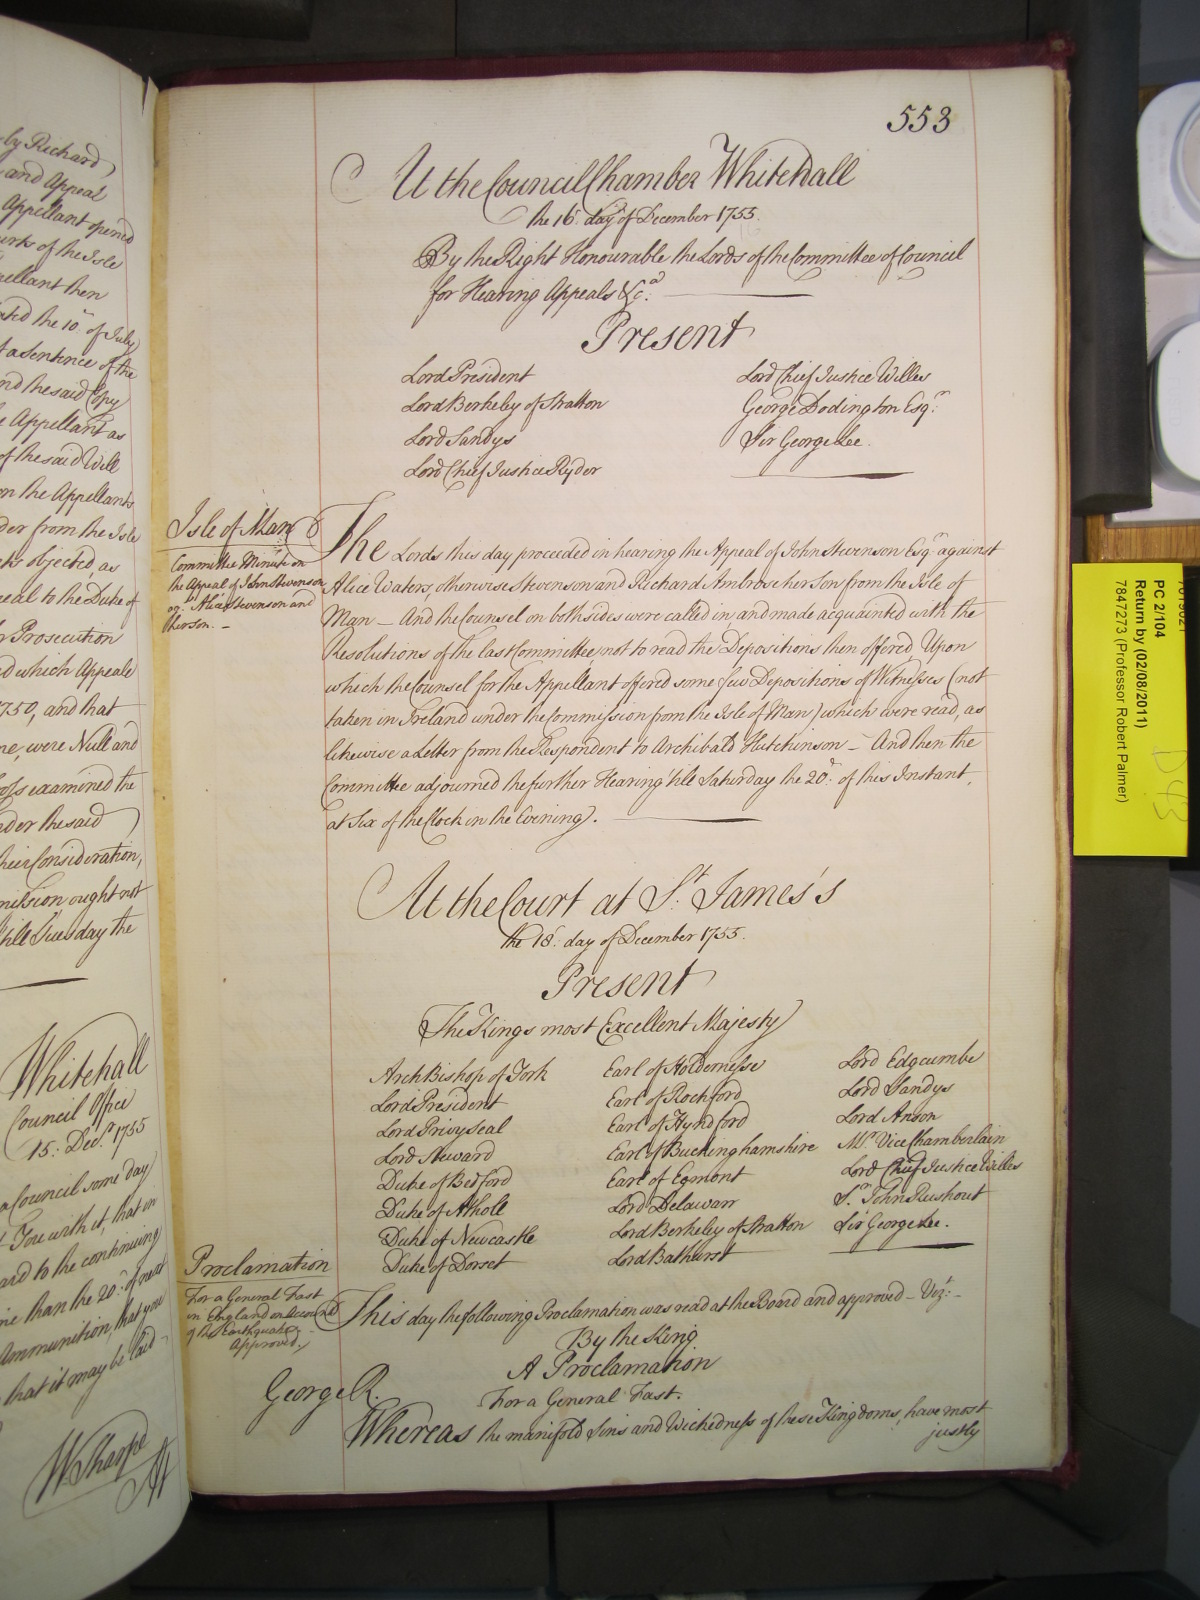 by Richard
and Appeal
Appellant opened
Courts of the Isle
Appellant then
dated the 10th. of July
of a Sentence of the
and the said Copy
the Appellant as
of the said Will
on the Appellants
der from the Isle
objected, as
peal to the Duke of
Prosecution
which Appeale
1750, and that
were Null and
Cross examined the
under the said
their Consideration,
mission ought not
till Tuesday the
Whitehall
Council Office
15: Decr. 1755
a Council some day
You with it, that in
to the continuing
than the 20th. of next
Ammunition, that you
that it may be laid
W Sharpe
553
At the Council Chamber Whitehall
the 16th. day of December 1755.
By the Right Honourable the Lords of the Committee of Council
for Hearing Appeals &ca.
Present
Lord President
Lord Berkeley of Stratton
Lord Sandys
Lord Chief Justice Ryder
Lord Chief Justice Willes
George Dodington Esqr.
Sir George Lee.
Isle of Man
Committee Minute on
the Appeal of John Stevenson
agt. Alice Stevenson and
her son. –
The Lords this day proceeded in hearing the Appeal of John Stevenson Esqr. against
Alice Waters, otherwise Stevenson and Richard Ambrose her Son from the Isle of
Man – And the Counsel on both sides were called in, and made acquainted with the
Resolutions of the last Committee, not to read the Depositions then offered, Upon
which the Counsel for the Appellant offered some few Depositions of Witnesses (not
taken in Ireland under the Commission from the Isle of Man) which were read, as
likewise a Letter from the Respondent to Archibald Hutchinson – And then the
Committee adjourned the further Hearing 'till Saturday the 20th. of this Instant,
at Six of the Clock in the Evening.
At the Court at St. James's
the 18th. day of December 1755.
Present
The Kings most Excellent Majesty
Arch Bishop of York
Lord President
Lord Privy Seal
Lord Steward
Duke of Bedford
Duke of Atholl
Duke of Newcastle
Duke of Dorset
Earl of Holdernesse
Earl of Rochford
Earl of Hyndford
Earl of Buckinghamshire
Earl of Egmont
Lord Delawarr
Lord Berkeley of Stratton
Lord Bathurst
Lord Edgcumbe
Lord Sandys
Lord Anson
Mr. Vice Chamberlain
Lord Chief Justice Willes
Sr. John Rushout
Sir George Lee.
Proclamation
For a General Fast
in England on account
of the Earthquakes
Approved.
This day the following Proclamation was read at the Board and approved – Vizt: –
By the King
A Proclamation
For a General Fast.
George R.
Whereas the manifold Sins and Wickedness of these Kingdoms, have most
justly
PC 2/104
Return by (02/08/2011)
7847273 (Professor Robert Palmer)